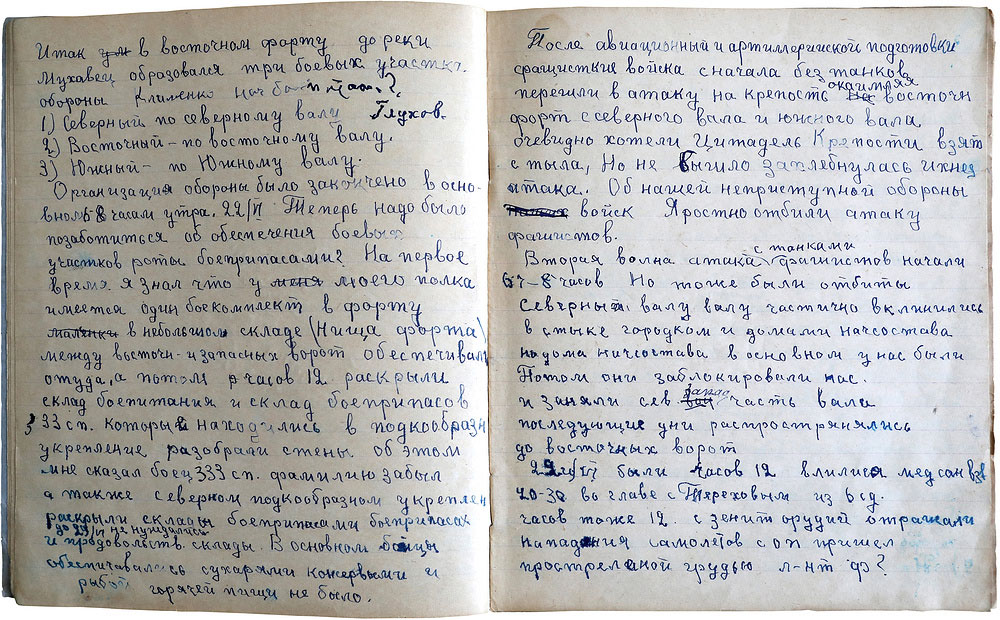 Итак ум в восточном форту до реки
Мухавец образовался три боевых участка.
обороны Клименко нач
1) Северный по северному валу Глухов.
2) Восточный - по восточному валу.
3) Южный - по Южному валу.
Организация обороны было закончено в осно-
вном к 8 часам утра. 22/VI Теперь надо было
позаботиться об обеспечения боевых
участков роты боеприпасами? На первое
время я знал что у меня моего полка
имеется один боекомплект в форту
маленки в небольшом складе (Ниша форта)
между восточн- и запасных ворот обеспечивали
оттуда, а потом р часов 12 раскрыли
склад боепитания и склад боеприпасов
333 сп. которы находились в подкообразн
укрепление разобрали стены об этом
мне сказал боец 333 сп. фамилию забыл
а также северном подкообразном укреплен
раскрыли склады боеприпасами боеприпасах
до 29/VI не нуждались
и продовольств. склады. В основном бойцы
обеспечивались сухарями консервыми и
рыбой горячей пищи не было.
После авиационный и артиллерийской подготовки
фашисткие войска сначала без танков
окаймляя
перешли в атаку на крепость на восточн
форт с северного вала и южного вала
очевидно хотели Цитадель Крепости взят
с тыла, Но не вышло захлебнулась их
атака. Об нашей неприступной обороны
наших войск Яростно отбили атаку
фашистов.
с танками
Вторая волна атака фашистов начали
67-8 часов Но тоже были отбиты
Северный валу валу частично вклинились
в стыке городком и домами начсостава
но дома начсостава в основном у нас были
Потом они заблокировали нас.
запад
и заняли сев вал часть вала
последующие дни распространялись
до восточных ворот
22/VI были часов 12 влились медсан взв
20-30 во главе с Тереховым из 6 сд.
часов тоже 12. с зенит орудий отражали
нападения самолетов с оп пришел
прострелиной грудью л-нт ?